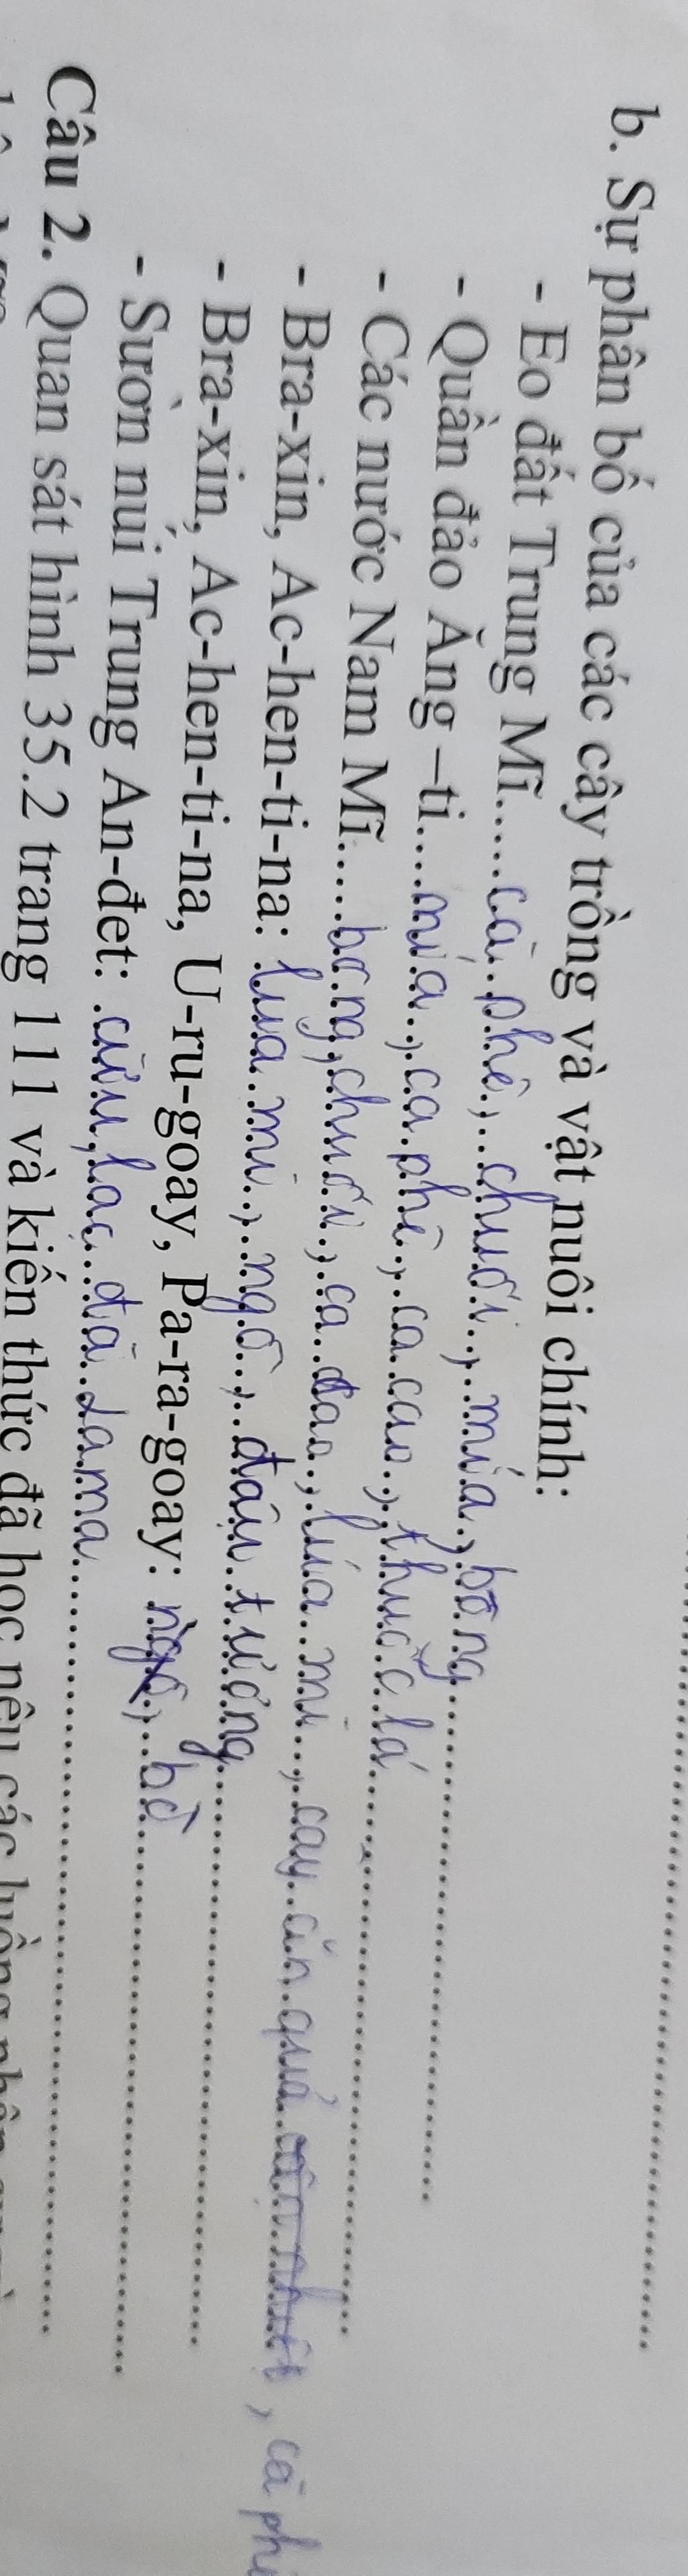 b. Sự phân bố của các cây trồng và vật nuôi chính:
- Eo đất Trung Mĩ.....cà phê, chuối, mía, bông
- Quần đảo Ăng –ti....mía, ca phê, ca cao, thuốc lá
- Các nước Nam Mĩ.....bông, chuối, ca cao, lúa mì, cây ăn quả, cà phê
- Bra-xin, Ac-hen-ti-na: lúa mì, ngô, đậu tương
- Bra-xin, Ac-hen-ti-na, U-ru-goay, Pa-ra-goay: bò
- Sườn núi Trung An-đet: cừu, lạc đà Lama
Câu 2. Quan sát hình 35.2 trang 111 và kiến thức đã học nêu các luồng nhập